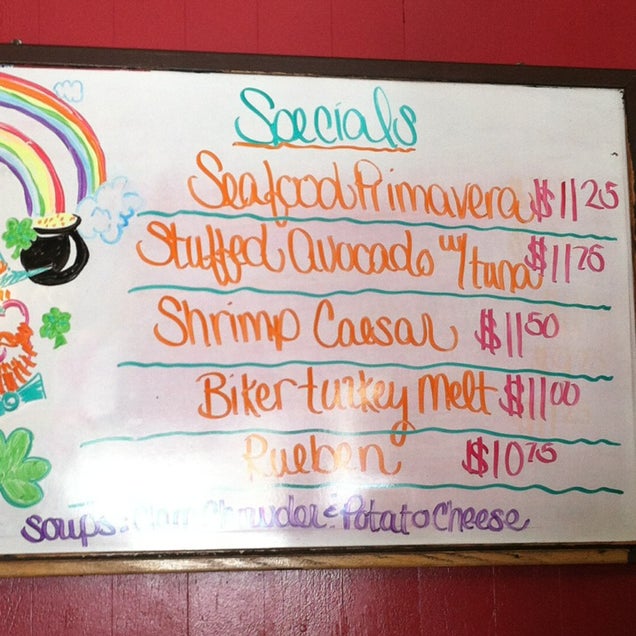 Specials
Seafood Primavera $11 25
Stuffed Avocado w/ tuna $11 75
Shrimp Caesar $11 50
Biker turkey Melt $11 00
Rueben $10 75
Soups: Clam Chowder & Potato Cheese